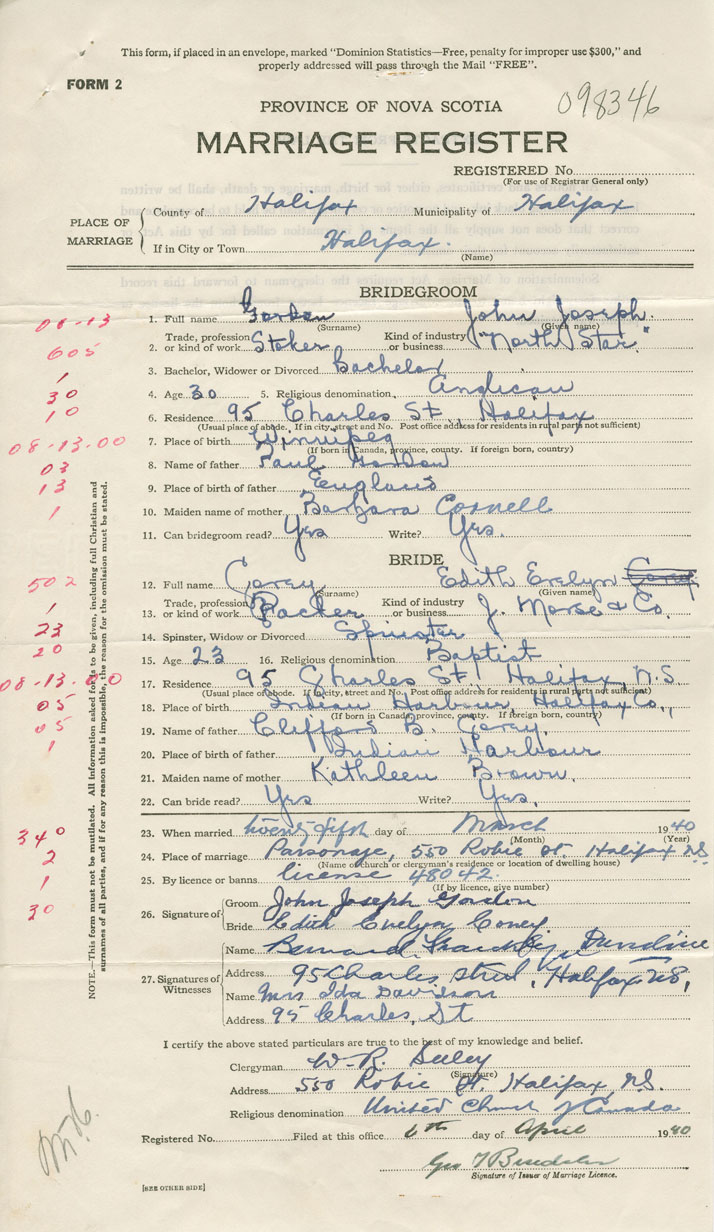 This form, if placed in an envelope, marked "Dominion Statistics—Free, penalty for improper use $300," and
properly addressed will pass through the Mail "FREE".
FORM 2
098346
PROVINCE OF NOVA SCOTIA
MARRIAGE REGISTER
REGISTERED No.
(For use of Registrar General only)
PLACE OF MARRIAGE
County of Halifax Municipality of Halifax
If in City or Town Halifax.
(Name)
BRIDEGROOM
08-13 1. Full name Gordon John Joseph.
(Surname) (Given name)
605 2. Trade, profession or kind of work Stoker Kind of industry or business "North Star"
1 3. Bachelor, Widower or Divorced Bachelor
30 4. Age 30 5. Religious denomination Anglican
10 6. Residence 95 Charles St., Halifax
(Usual place of abode. If in city, street and No. Post office address for residents in rural parts not sufficient)
08-13.00 7. Place of birth Winnipeg
(If born in Canada, province, county. If foreign born, country)
03 8. Name of father Paul Gordon
13 9. Place of birth of father England
1 10. Maiden name of mother Barbara Cornell
11. Can bridegroom read? Yes Write? Yes.
BRIDE
502 12. Full name Covey Edith Evelyn Covey
(Surname) (Given name)
1 13. Trade, profession or kind of work Packer Kind of industry or business J. Morse & Co.
23 14. Spinster, Widow or Divorced Spinster
20 15. Age 23 16. Religious denomination Baptist
08-13.00 17. Residence 95 Charles St. Halifax, N.S.
(Usual place of abode. If in city, street and No. Post office address for residents in rural parts not sufficient)
05 18. Place of birth Indian Harbour, Halifax Co.,
(If born in Canada, province, county. If foreign born, country)
05 19. Name of father Clifford B. Covey
1 20. Place of birth of father Indian Harbour
21. Maiden name of mother Kathleen Brown.
22. Can bride read? Yes Write? Yes.
340 23. When married twenty fifth day of March 1940
(Month) (Year)
2 24. Place of marriage Parsonage, 550 Robie St. Halifax NS
(Name of church or clergyman's residence or location of dwelling house)
1 25. By licence or banns license 48042
(If by licence, give number)
30 26. Signature of
Groom John Joseph Gordon
Bride Edith Evelyn Covey
27. Signatures of Witnesses
Name Bernard
Address 95 Charles Street, Halifax NS,
Name Mrs Ida Davidson
Address 95 Charles, St
NOTE.—This form must not be mutilated. All information asked for is to be given, including full Christian and
surnames of all parties, and if for any reason this is impossible, the reason for the omission must be stated.
I certify the above stated particulars are true to the best of my knowledge and belief.
Clergyman W. R. Seeley
(Signature)
Address 550 Robie St. Halifax, N.S.
Religious denomination United Church of Canada
Registered No. Filed at this office 6th day of April 1940
Geo
Signature of Issuer of Marriage Licence.
[SEE OTHER SIDE]